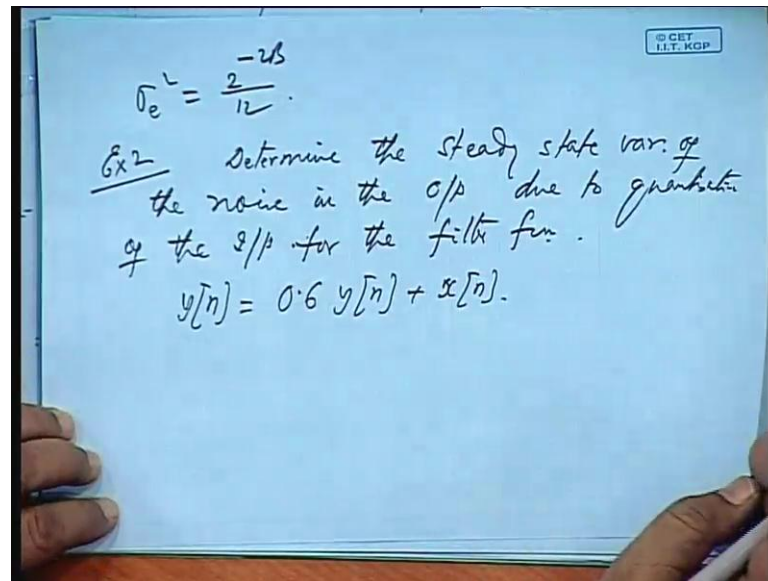 © CET
I.I.T. KGP
σe² = 2^-2B / 12 .
Ex 2 Determine the steady state var. of
the noise in the o/p due to quantisation
of the I/p for the filter fun .
y[n] = 0.6 y[n] + x[n].